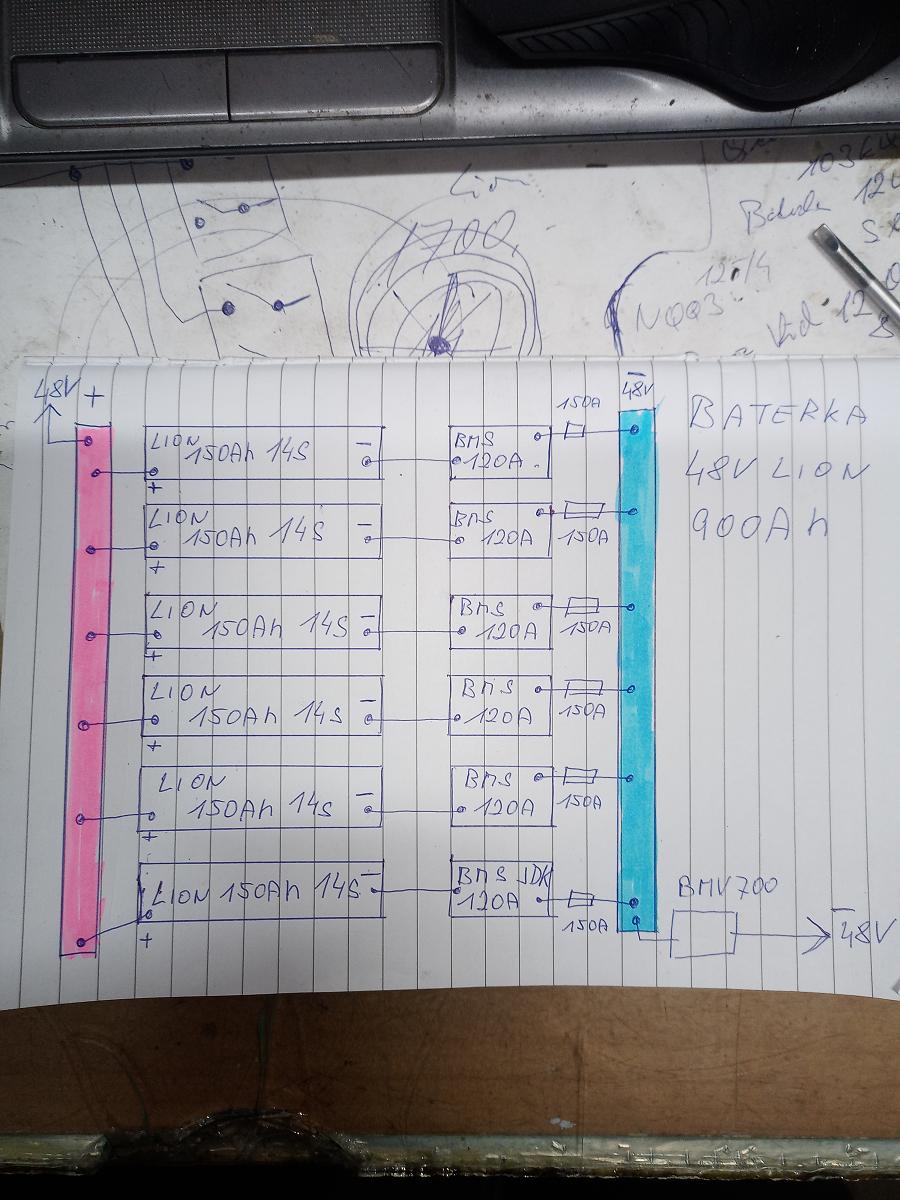 Lion
1700
103
12
12
48V
+
-
48V
BATERKA
48V LION
900Ah
LION
150Ah 14S
-
+
BMS
120A
150A
LION
150Ah 14S
-
+
BMS
120A
150A
LION
150Ah 14S
-
+
BMS
120A
150A
LION
150Ah 14S
-
+
BMS
120A
150A
LION
150Ah 14S
-
+
BMS
120A
150A
LION 150Ah 14S
-
+
BMS JDK
120A
150A
BMV700
-
48V